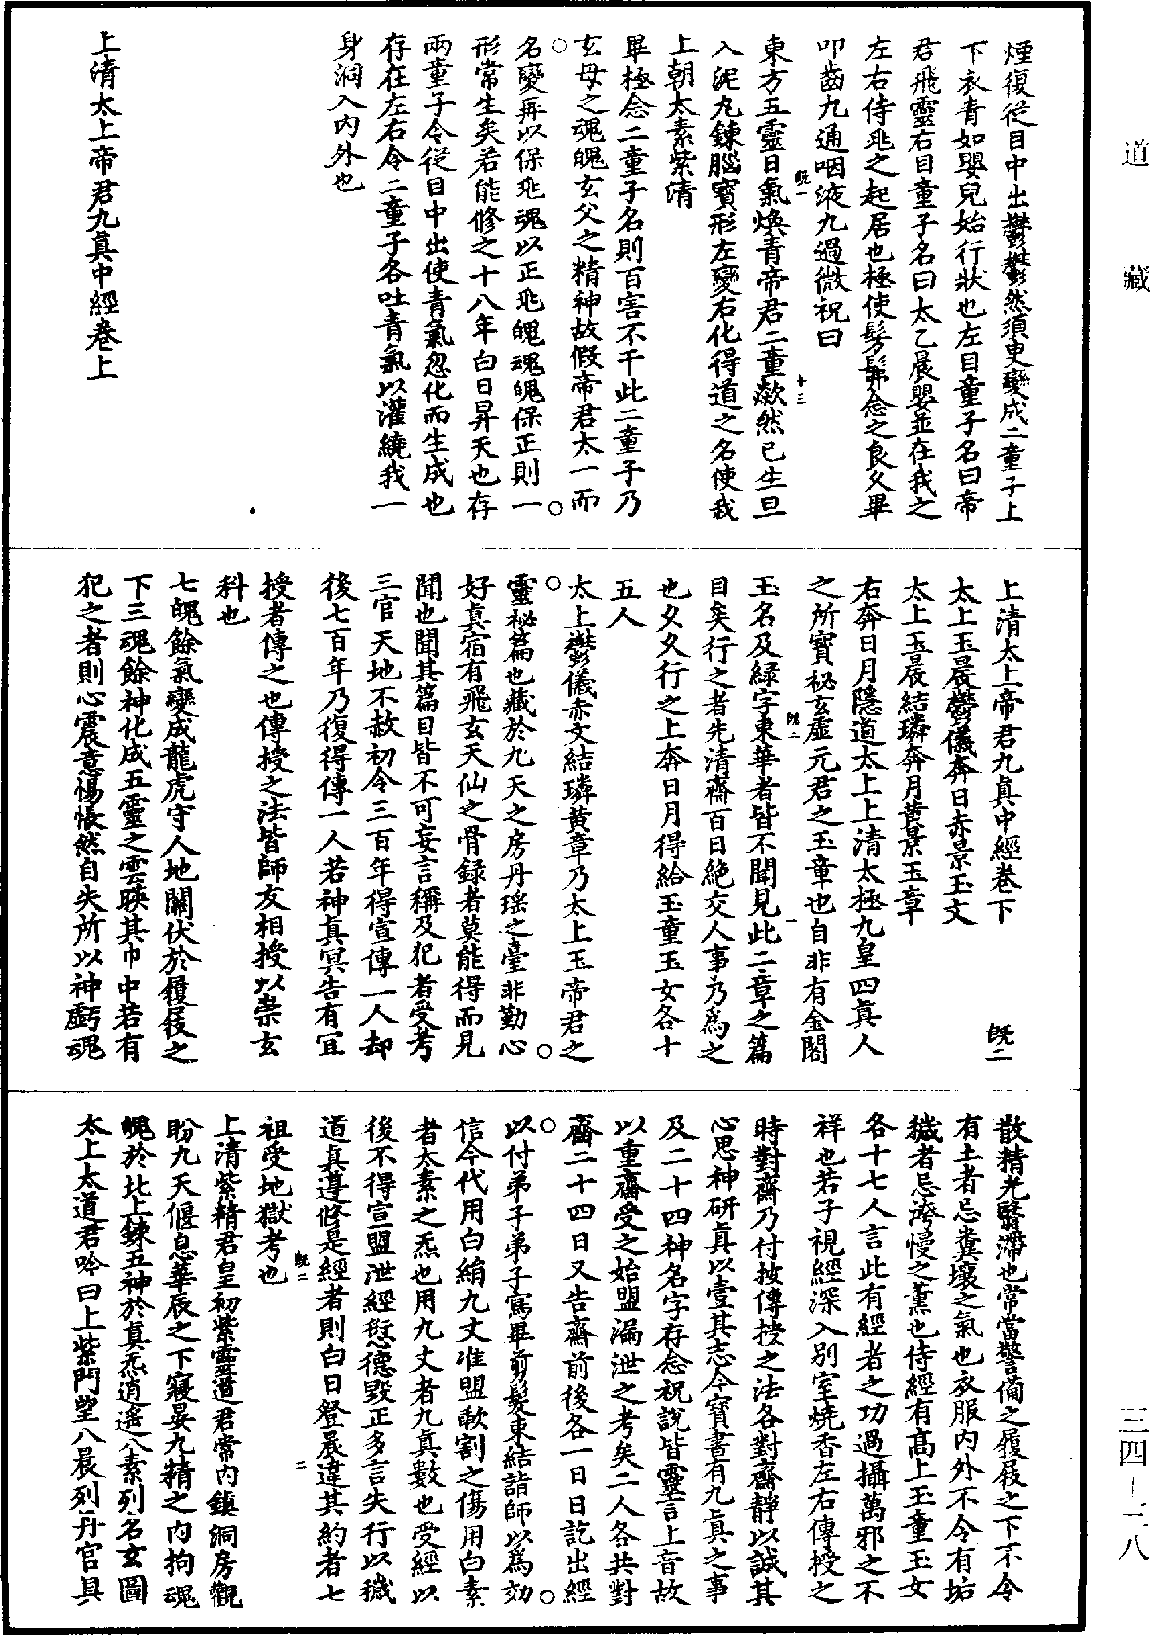 道藏
煙復從目中出鬱鬱然須臾變成二童子上
下衣青如嬰兒始行狀也左目童子名曰帝
君飛靈右目童子名曰太乙晨嬰並在我之
左右侍兆之起居也極使髣髴念之良久畢
叩齒九通咽液九過微祝曰
東方五靈日氣煥青帝君二童歘然已生旦
既一
十三
入泥丸鍊腦寶形左變右化得道之名使我
上朝太素紫清
畢極念二童子名則百害不干此二童子乃
玄母之魂魄玄父之精神故假帝君太一而
名變再以保兆魂以正兆魄魂魄保正則一
形常生矣若能修之十八年白日昇天也存
兩童子令從目中出使青氣忽化而生成也
存在左右令二童子各吐青氣以灌繞我一
身洞入內外也
上清太上帝君九真中經卷上
上清太上帝君九真中經卷下
既二
太上玉晨鬱儀奔日赤景玉文
太上玉晨結璘奔月黃景玉章
右奔日月隱道太上上清太極九皇四真人
之所寶祕玄虛元君之玉章也自非有金閣
既二
一
玉名及綠字東華者皆不聞見此二章之篇
目矣行之者先清齋百日絕交人事乃為之
也久久行之上奔日月得給玉童玉女各十
五人
太上鬱儀赤文結璘黃章乃太上玉帝君之
靈祕篇也藏於九天之房丹瑤之臺非勤心
好真宿有飛玄天仙之骨錄者莫能得而見
聞也聞其篇目皆不可妄言稱及犯者受考
三官天地不赦初令三百年得宣傳一人却
後七百年乃復得傳一人若神真冥告有宜
授者傳之也傳授之法皆師友相授以崇玄
科也
七魄餘氣變成龍虎守人地關伏於履屐之
下三魂餘神化成五靈之雲暎其巾中若有
犯之者則心震意惕悵然自失所以神虧魂
散精光翳滯也常當警備之履屐之下不令
有土者忌糞壤之氣也衣服內外不令有垢
穢者忌濟慢之薰也侍經有高上玉童玉女
各十七人言此有經者之功過攝萬邪之不
祥也若子視經深入別室燒香左右傳授之
時對齋乃付按傳授之法各對齋靜以誠其
心思神研真以壹其志今寶書有九真之事
及二十四神名字存念祝說皆靈言上音故
以重齋受之始盟漏泄之考矣二人各共對
齋二十四日又告齋前後各一日日訖出經
以付弟子弟子寫畢剪髮束結詣師以為効
信今代用白絹九丈准盟歃割之傷用白素
者太素之炁也用九丈者九真數也受經以
後不得宣盟泄經愆德毀正多言失行以穢
道真遵修是經者則白日登晨違其約者七
祖受地獄考也
既二
二
上清紫精君皇初紫靈道君常內鎮洞房觀
盼九天偃息華辰之下寢晏九精之內拘魂
魄於北上鍊五神於真炁逍遙八素列名玄圖
太上太道君吟曰上紫門望八晨列丹官具
三四-二八